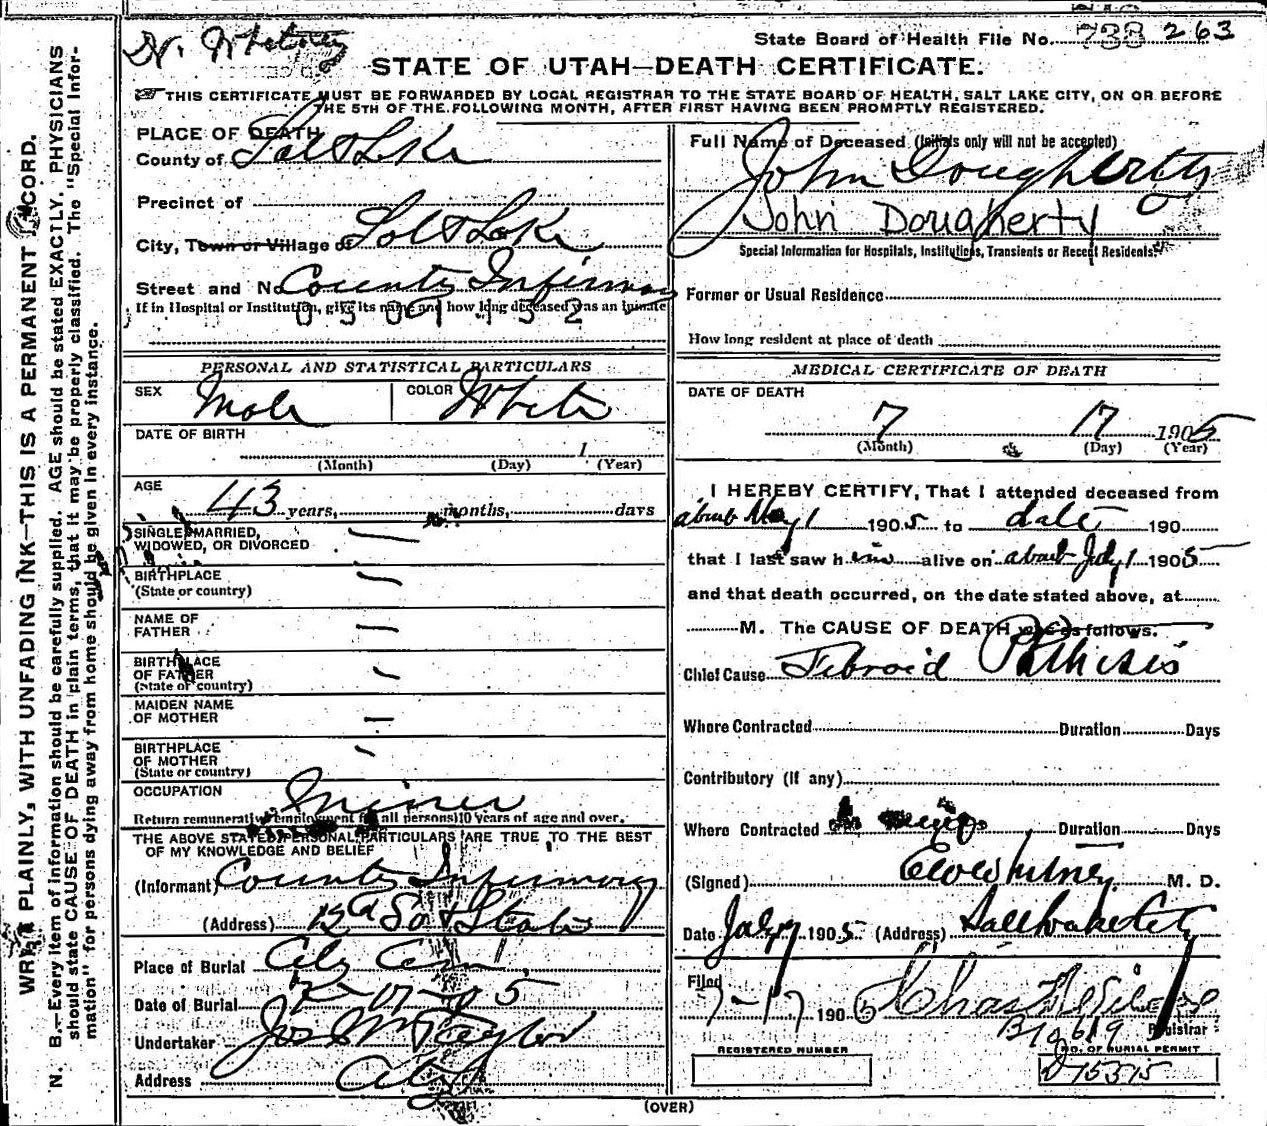 Dr. Whitney
State Board of Health File No. 738 263
STATE OF UTAH—DEATH CERTIFICATE.
THIS CERTIFICATE MUST BE FORWARDED BY LOCAL REGISTRAR TO THE STATE BOARD OF HEALTH, SALT LAKE CITY, ON OR BEFORE
THE 5TH OF THE FOLLOWING MONTH, AFTER FIRST HAVING BEEN PROMPTLY REGISTERED.
PLACE OF DEATH
County of Salt Lake
Precinct of
City, Town or Village of Salt Lake
Street and No. County Infirmary
If in Hospital or Institution, give its name and how long deceased was an inmate
0501432
PERSONAL AND STATISTICAL PARTICULARS
SEX Male COLOR White
DATE OF BIRTH
1
(Month) (Day) (Year)
AGE
43 years, months, days
SINGLE, MARRIED,
WIDOWED, OR DIVORCED —
BIRTHPLACE —
(State or country)
NAME OF
FATHER —
BIRTHPLACE
OF FATHER —
(State or country)
MAIDEN NAME
OF MOTHER —
BIRTHPLACE
OF MOTHER —
(State or country)
OCCUPATION Miner
Return remunerative employment for all persons 10 years of age and over.
THE ABOVE STATED PERSONAL PARTICULARS ARE TRUE TO THE BEST
OF MY KNOWLEDGE AND BELIEF
(Informant) County Infirmary
(Address) 12th So & State
Place of Burial City Cem
Date of Burial 7-17-05
Undertaker Jos Wm Taylor
Address City
Full Name of Deceased (Initials only will not be accepted)
John Dougherty
John Dougherty
Special Information for Hospitals, Institutions, Transients or Recent Residents.
Former or Usual Residence
How long resident at place of death
MEDICAL CERTIFICATE OF DEATH
DATE OF DEATH
7 17 1905
(Month) (Day) (Year)
I HEREBY CERTIFY, That I attended deceased from
about May 1 1905 to date 190
that I last saw him alive on about July 1 1905
and that death occurred, on the date stated above, at
M. The CAUSE OF DEATH was as follows.
Chief Cause Febroid Phthisis
Where Contracted Duration Days
Contributory (If any)
Where Contracted Duration Days
(Signed) Whitney M. D.
Date July 17 1905 (Address) Salt Lake City
Filed
7-17 1905 Chas
Registrar
REGISTERED NUMBER
NO. OF BURIAL PERMIT
D15315
(OVER)
WRITE PLAINLY, WITH UNFADING INK—THIS IS A PERMANENT RECORD.
N. B.—Every item of information should be carefully supplied. AGE should be stated EXACTLY. PHYSICIANS
should state CAUSE OF DEATH in plain terms, that it may be properly classified. The "Special Infor-
mation" for persons dying away from home should be given in every instance.